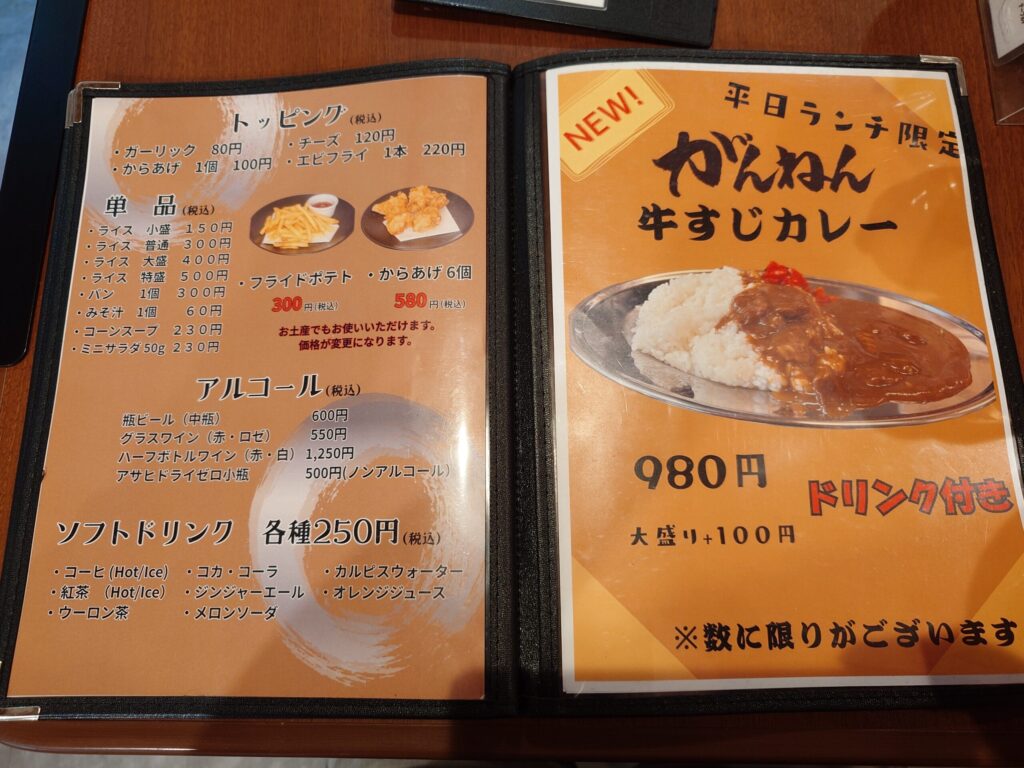 トッピング(税込)
・ガーリック 80円
・チーズ 120円
・からあげ 1個 100円
・エビフライ 1本 220円
単 品(税込)
・ライス 小盛 150円
・ライス 普通 300円
・ライス 大盛 400円
・ライス 特盛 500円
・パン 1個 300円
・みそ汁 1個 60円
・コーンスープ 230円
・ミニサラダ50g 230円
・フライドポテト
300円(税込)
・からあげ6個
580円(税込)
お土産でもお使いいただけます。
価格が変更になります。
アルコール(税込)
瓶ビール（中瓶） 600円
グラスワイン（赤・ロゼ） 550円
ハーフボトルワイン（赤・白） 1,250円
アサヒドライゼロ小瓶 500円(ノンアルコール)
ソフトドリンク 各種250円(税込)
・コーヒ (Hot/Ice) ・コカ・コーラ ・カルピスウォーター
・紅茶 （Hot/Ice） ・ジンジャーエール ・オレンジジュース
・ウーロン茶 ・メロンソーダ
NEW!
平日ランチ限定
がんねん
牛すじカレー
980円
ドリンク付き
大盛り+100円
※数に限りがございます